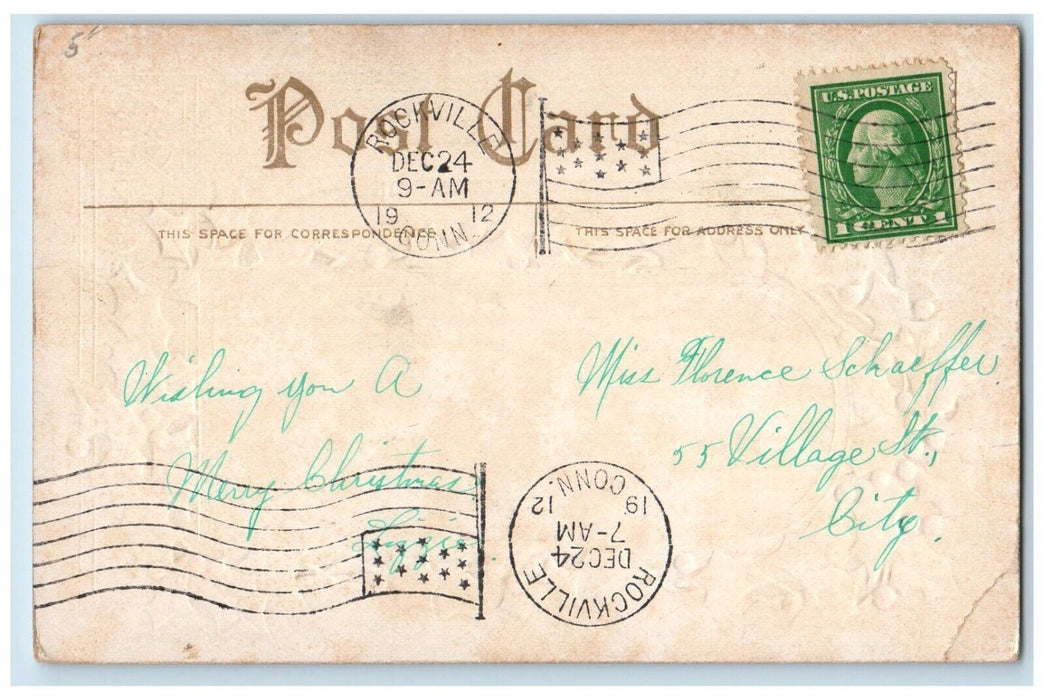 5
Post Card
ROCKVILLE
DEC 24
9-AM
19 12
CONN.
U.S. POSTAGE
1 CENT 1
THIS SPACE FOR CORRESPONDENCE
THIS SPACE FOR ADDRESS ONLY
Wishing you A
Merry Christmas
Lizzie.
Miss Florence Schaeffer.
55 Village St.,
City.
ROCKVILLE
DEC 24
7-AM
19 12
CONN.